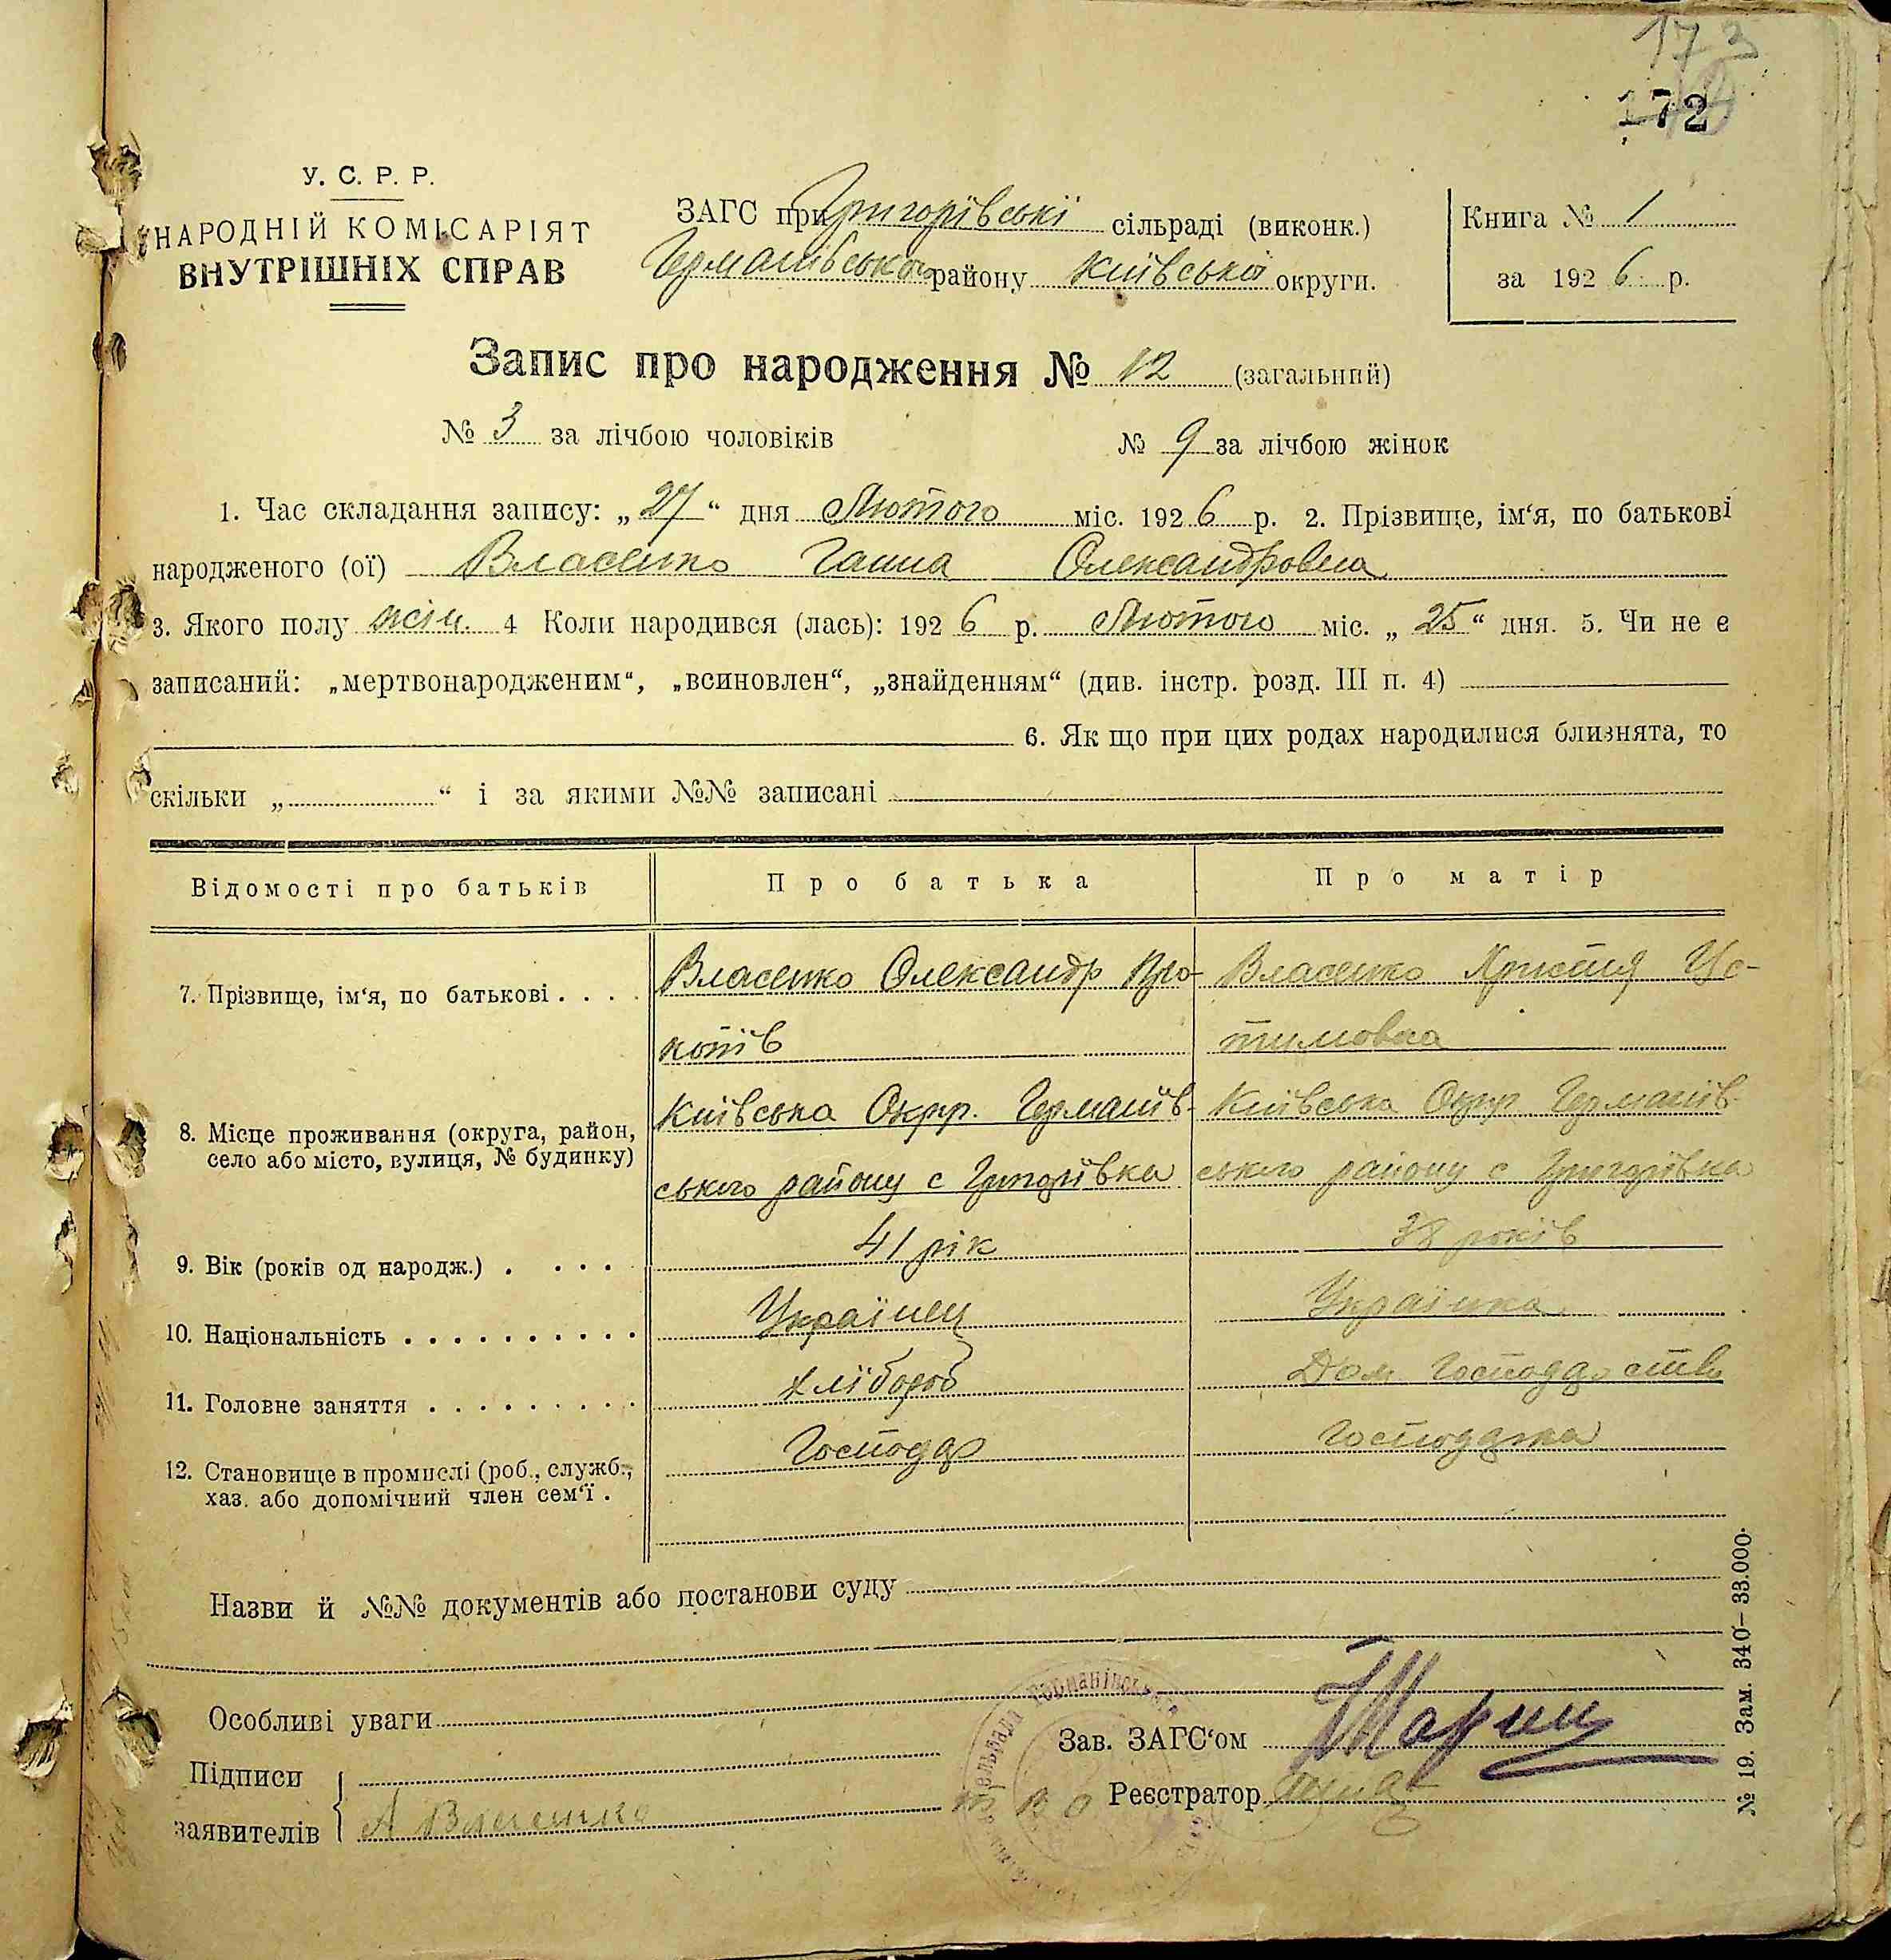 173
172
У. С. Р. Р.
НАРОДНІЙ КОМІСАРІЯТ
ВНУТРІШНІХ СПРАВ
ЗАГС при Григорівські сільраді (виконк.)
Германівського району Київської округи.
Книга № 1
за 1926 р.
Запис про народження № 12 (загальний)
№ 3 за лічбою чоловіків № 9 за лічбою жінок
1. Час складання запису: „27“ дня Лютого міс. 1926 р. 2. Прізвище, ім‘я, по батькові
народженого (ої) Власенко Ганна Олександровна
3. Якого полу жін. 4 Коли народився (лась): 1926 р. Лютого міс. „25“ дня. 5. Чи не є
записаний: „мертвонародженим“, „всиновлен“, „знайденням“ (див. інстр. розд. III п. 4)
6. Як що при цих родах народилися близнята, то
скільки „ “ і за якими №№ записані
Відомості про батьків Про батька Про матір
7. Прізвище, ім‘я, по батькові . . . . Власенко Олександр Про- Власенко Христия Ус-
копів тимовна
8. Місце проживання (округа, район, Київська Окр. Германів- Київська Окр Германів-
село або місто, вулиця, № будинку) ського району с Григорівка ського району с Григорівка
9. Вік (років од народж.) . . . . 41 рік 38 років
10. Національність . . . . . . . . . . Українец Українка
11. Головне заняття . . . . . . . . . Хлібороб Дом. Господарство
12. Становище в промислі (роб., служб., Господар Господарка
хаз. або допомічний член сем‘ї .
Назви й №№ документів або постанови суду
Особливі уваги
Зав. ЗАГС‘ом
Підписи
заявителів А Власенко
Реєстратор
№ 19. Зам. 340– 33.000.